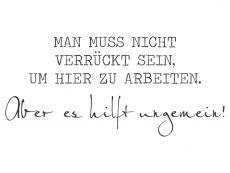 MAN MUSS NICHT
VERRÜCKT SEIN,
UM HIER ZU ARBEITEN.
Aber es hilft ungemein!